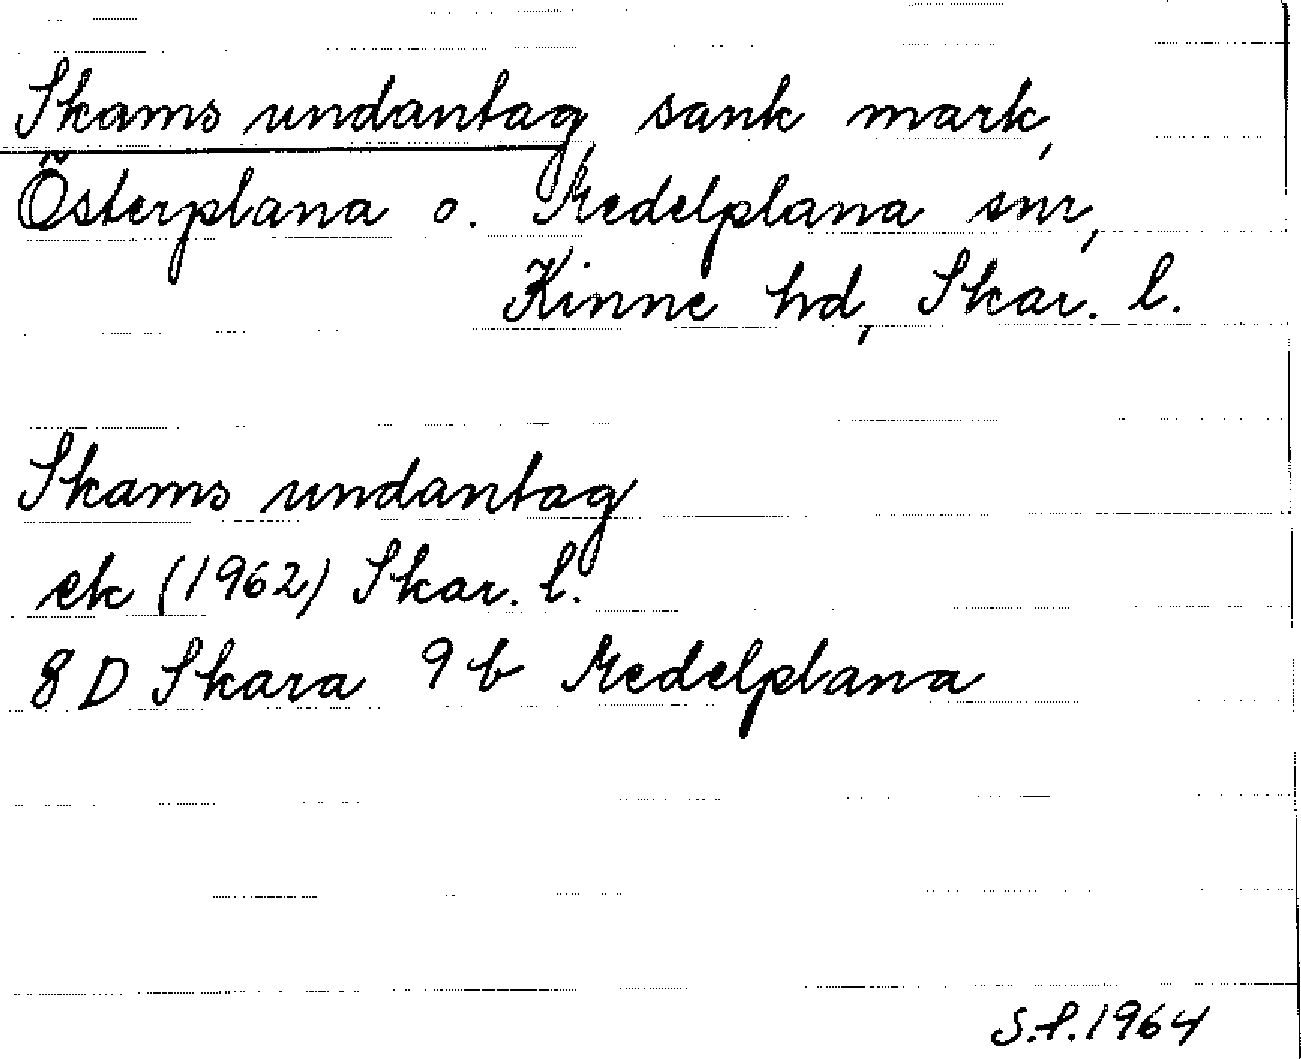 Skams undantag sank mark,
Österplana o. Medelplana snr,
Kinne hd, Skar. l.
Skams undantag
ek (1962) Skar. l.
8 D Skara 9 b Medelplana
S.P. 1964